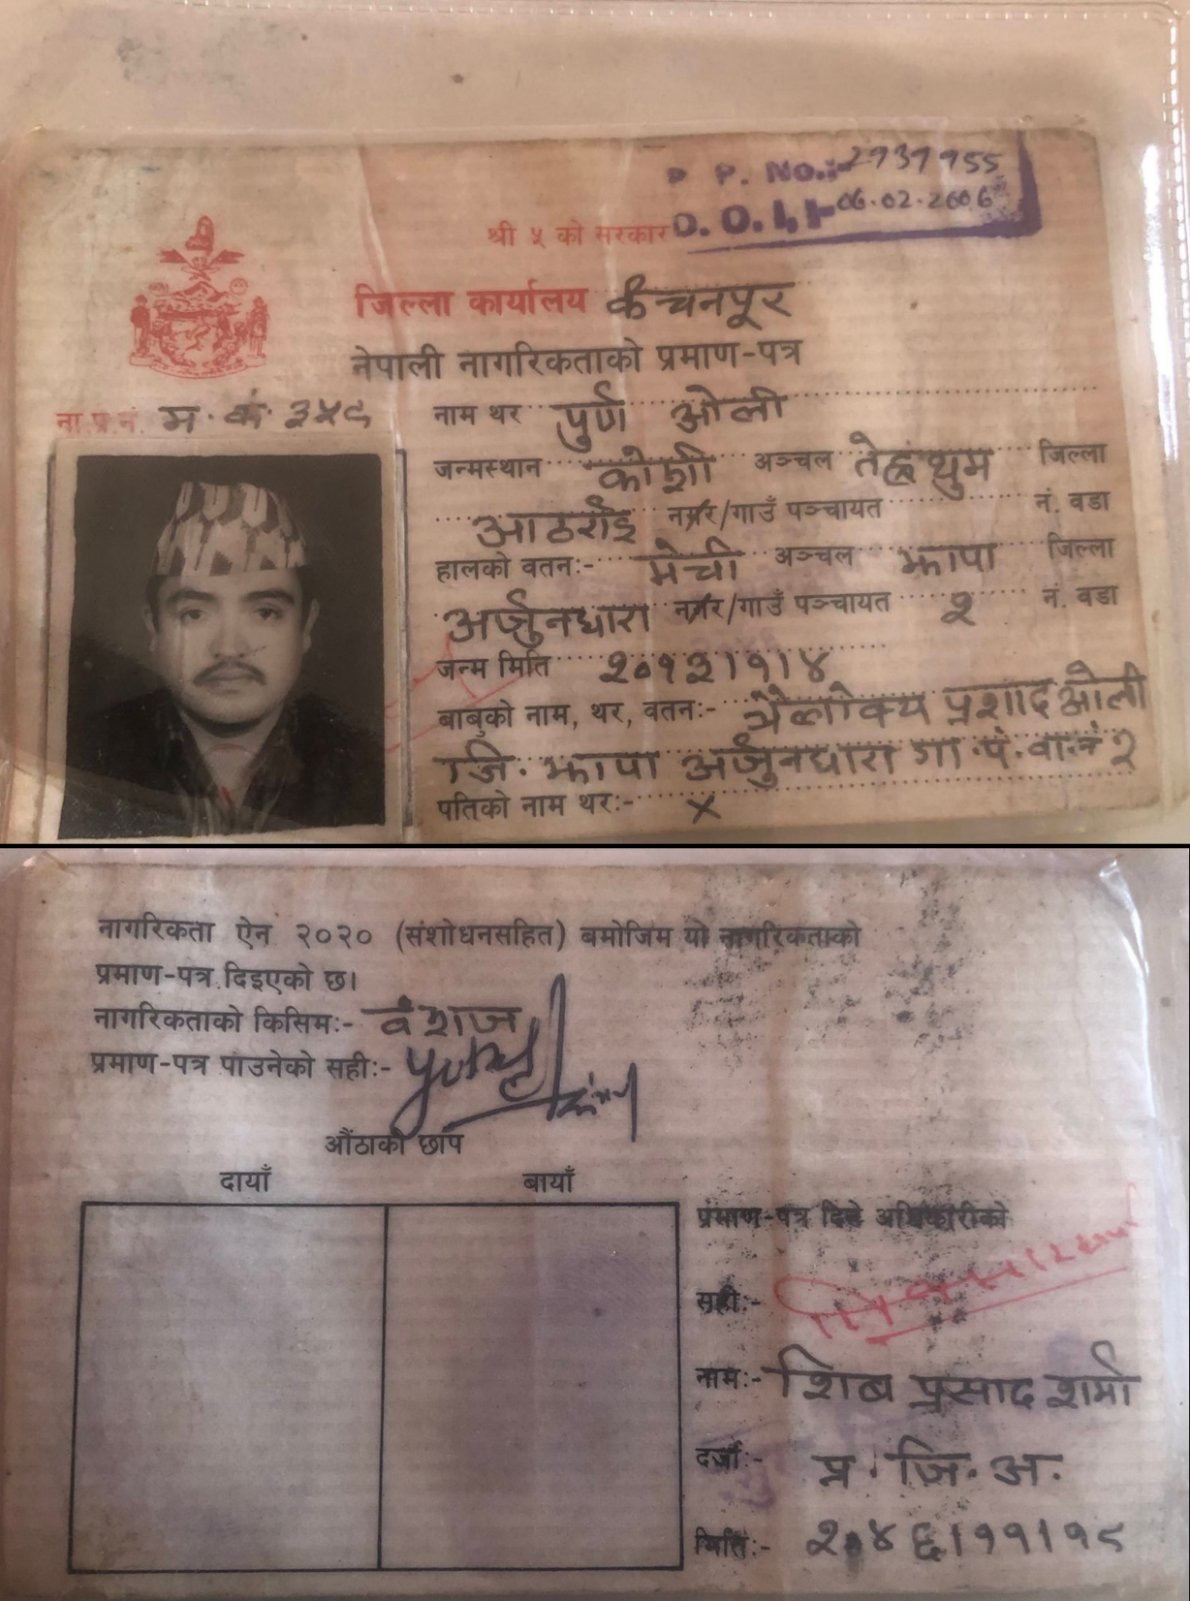 P. P. No.:- 2737955
D. O. I. :- 06.02.2006
श्री ५ को सरकार
जिल्ला कार्यालय कंचनपूर
नेपाली नागरिकताको प्रमाण-पत्र
ना.प्र.नं. म. कं. ३५९
नाम थर पुर्ण ओली
जन्मस्थान कोशी अञ्चल तेह्रथुम जिल्ला
आठराई नगर/गाउँ पञ्चायत नं. वडा
हालको वतन:- मेची अञ्चल झापा जिल्ला
अर्जुनधारा नगर/गाउँ पञ्चायत २ नं. वडा
जन्म मिति २०१२।१।४
बाबुको नाम, थर, वतन:- त्रैलोक्य प्रशाद ओली
जि. झापा अर्जुनधारा गा.पं. वा.नं २
पतिको नाम थर:- x
नागरिकता ऐन २०२० (संशोधनसहित) बमोजिम यो नागरिकताको
प्रमाण-पत्र दिइएको छ।
नागरिकताको किसिम:- वंशज
प्रमाण-पत्र पाउनेको सही:-
औंठाको छाप
दायाँ बायाँ
प्रमाण-पत्र दिने अधिकारीको
सही:-
नाम:- शिव प्रसाद शर्मा
दर्जा:- प्र. जि. अ.
मिति:- २०४६।११।१८